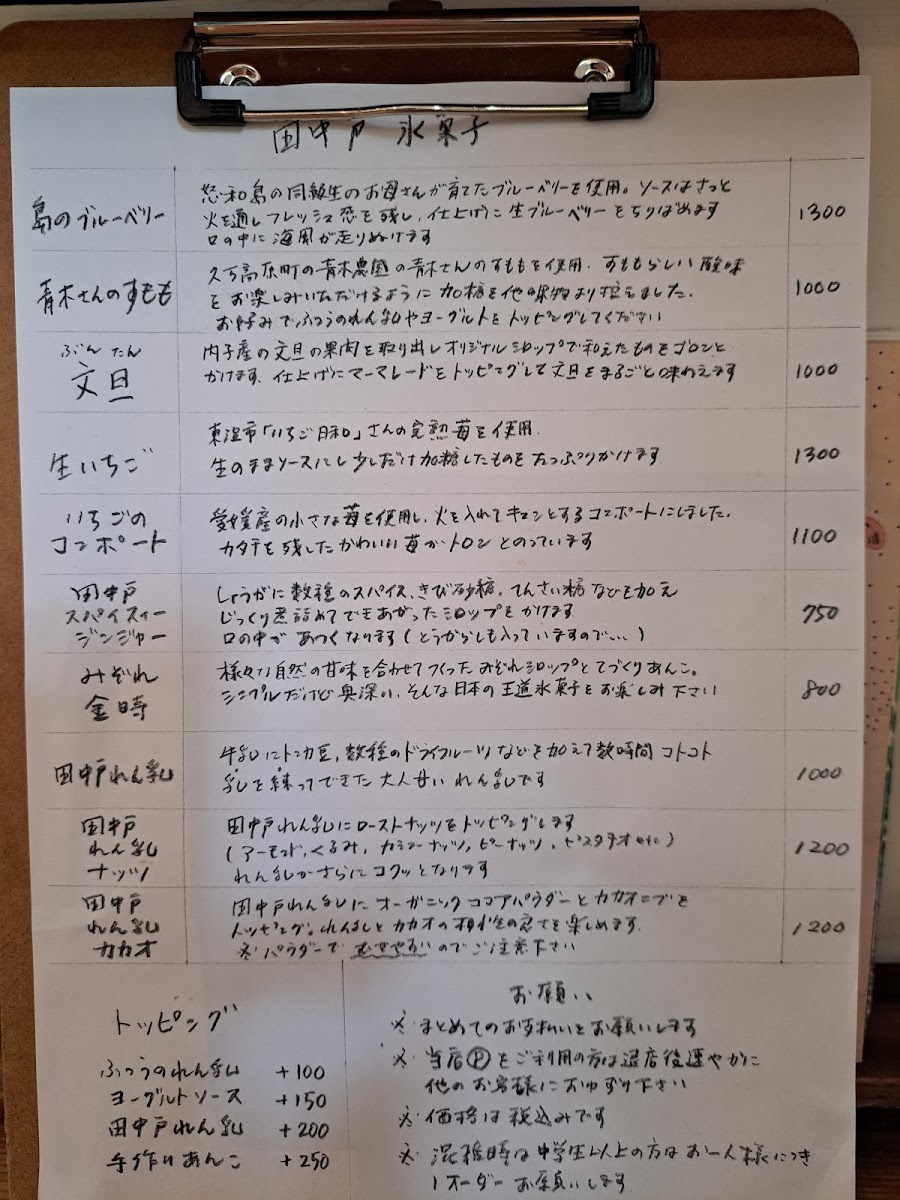 田中戸 氷菓子
島のブルーベリー
怒和島の同級生のお母さんが育てたブルーベリーを使用。ソースはさっと
火を通しフレッシュ感を残し、仕上げに生ブルーベリーをちりばめます
口の中に海風が走りぬけます
1300
青木さんのすもも
久万高原町の青木農園の青木さんのすももを使用、すももらしい酸味
をお楽しみいただけるように加糖を他の果物より控えました。
お好みでふつうのれん乳やヨーグルトをトッピングしてください
1000
ぶんたん
文旦
内子産の文旦の果肉を取り出しオリジナルシロップで和えたものをゴロンと
かけます、仕上げにマーマレードをトッピングして文旦をまるごと味わえます
1000
生いちご
東温市「いちご日和」さんの完熟苺を使用
生のままソースにし少しだけ加糖したものをたっぷりかけます
1300
いちごの
コンポート
愛媛産の小さな苺を使用し、火を入れてキュンとするコンポートにしました。
カタチを残したかわいい苺がトロンとのっています
1100
田中戸
スパイスィー
ジンジャー
しょうがに数種のスパイス、きび砂糖、てんさい糖などを加え
じっくり煮詰めてできあがったシロップをかけます
口の中があつくなります(とうがらしも入っていますので...)
750
みぞれ
金時
様々な自然の甘味を合わせてつくったみぞれシロップとてづくりあんこ。
シンプルだけど奥深い、そんな日本の王道氷菓子をお楽しみ下さい
800
田中戸れん乳
牛乳にトンカ豆、数種のドライフルーツなどを加えて数時間コトコト
乳を練ってできた大人甘いれん乳です
1000
田中戸
れん乳
ナッツ
田中戸れん乳にローストナッツをトッピングします
(アーモンド、くるみ、カシューナッツ、ピーナッツ、ピスタチオetc)
れん乳がさらにコクッとなります
1200
田中戸
れん乳
カカオ
田中戸れん乳にオーガニックココアパウダーとカカオニブを
トッピング。れん乳とカカオの相性の良さを楽しめます。
※パウダーでむせやすいのでご注意下さい
1200
トッピング
ふつうのれん乳 +100
ヨーグルトソース +150
田中戸れん乳 +200
手作りあんこ +250
お願い
※まとめてのお支払いをお願いします
※当店Ⓟをご利用の方は退店後速やかに
他のお客様におゆずり下さい
※価格は税込みです
※混雑時は中学生以上の方はお一人様につき
1オーダーお願いします